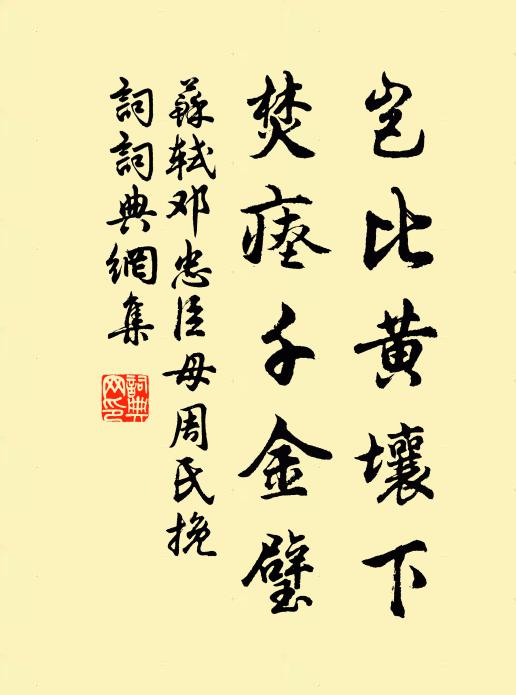 岂比黄壤下
焚瘗千金璧
蘇轼邓忠臣母周氏挽
詞詞典網集
詞典网印